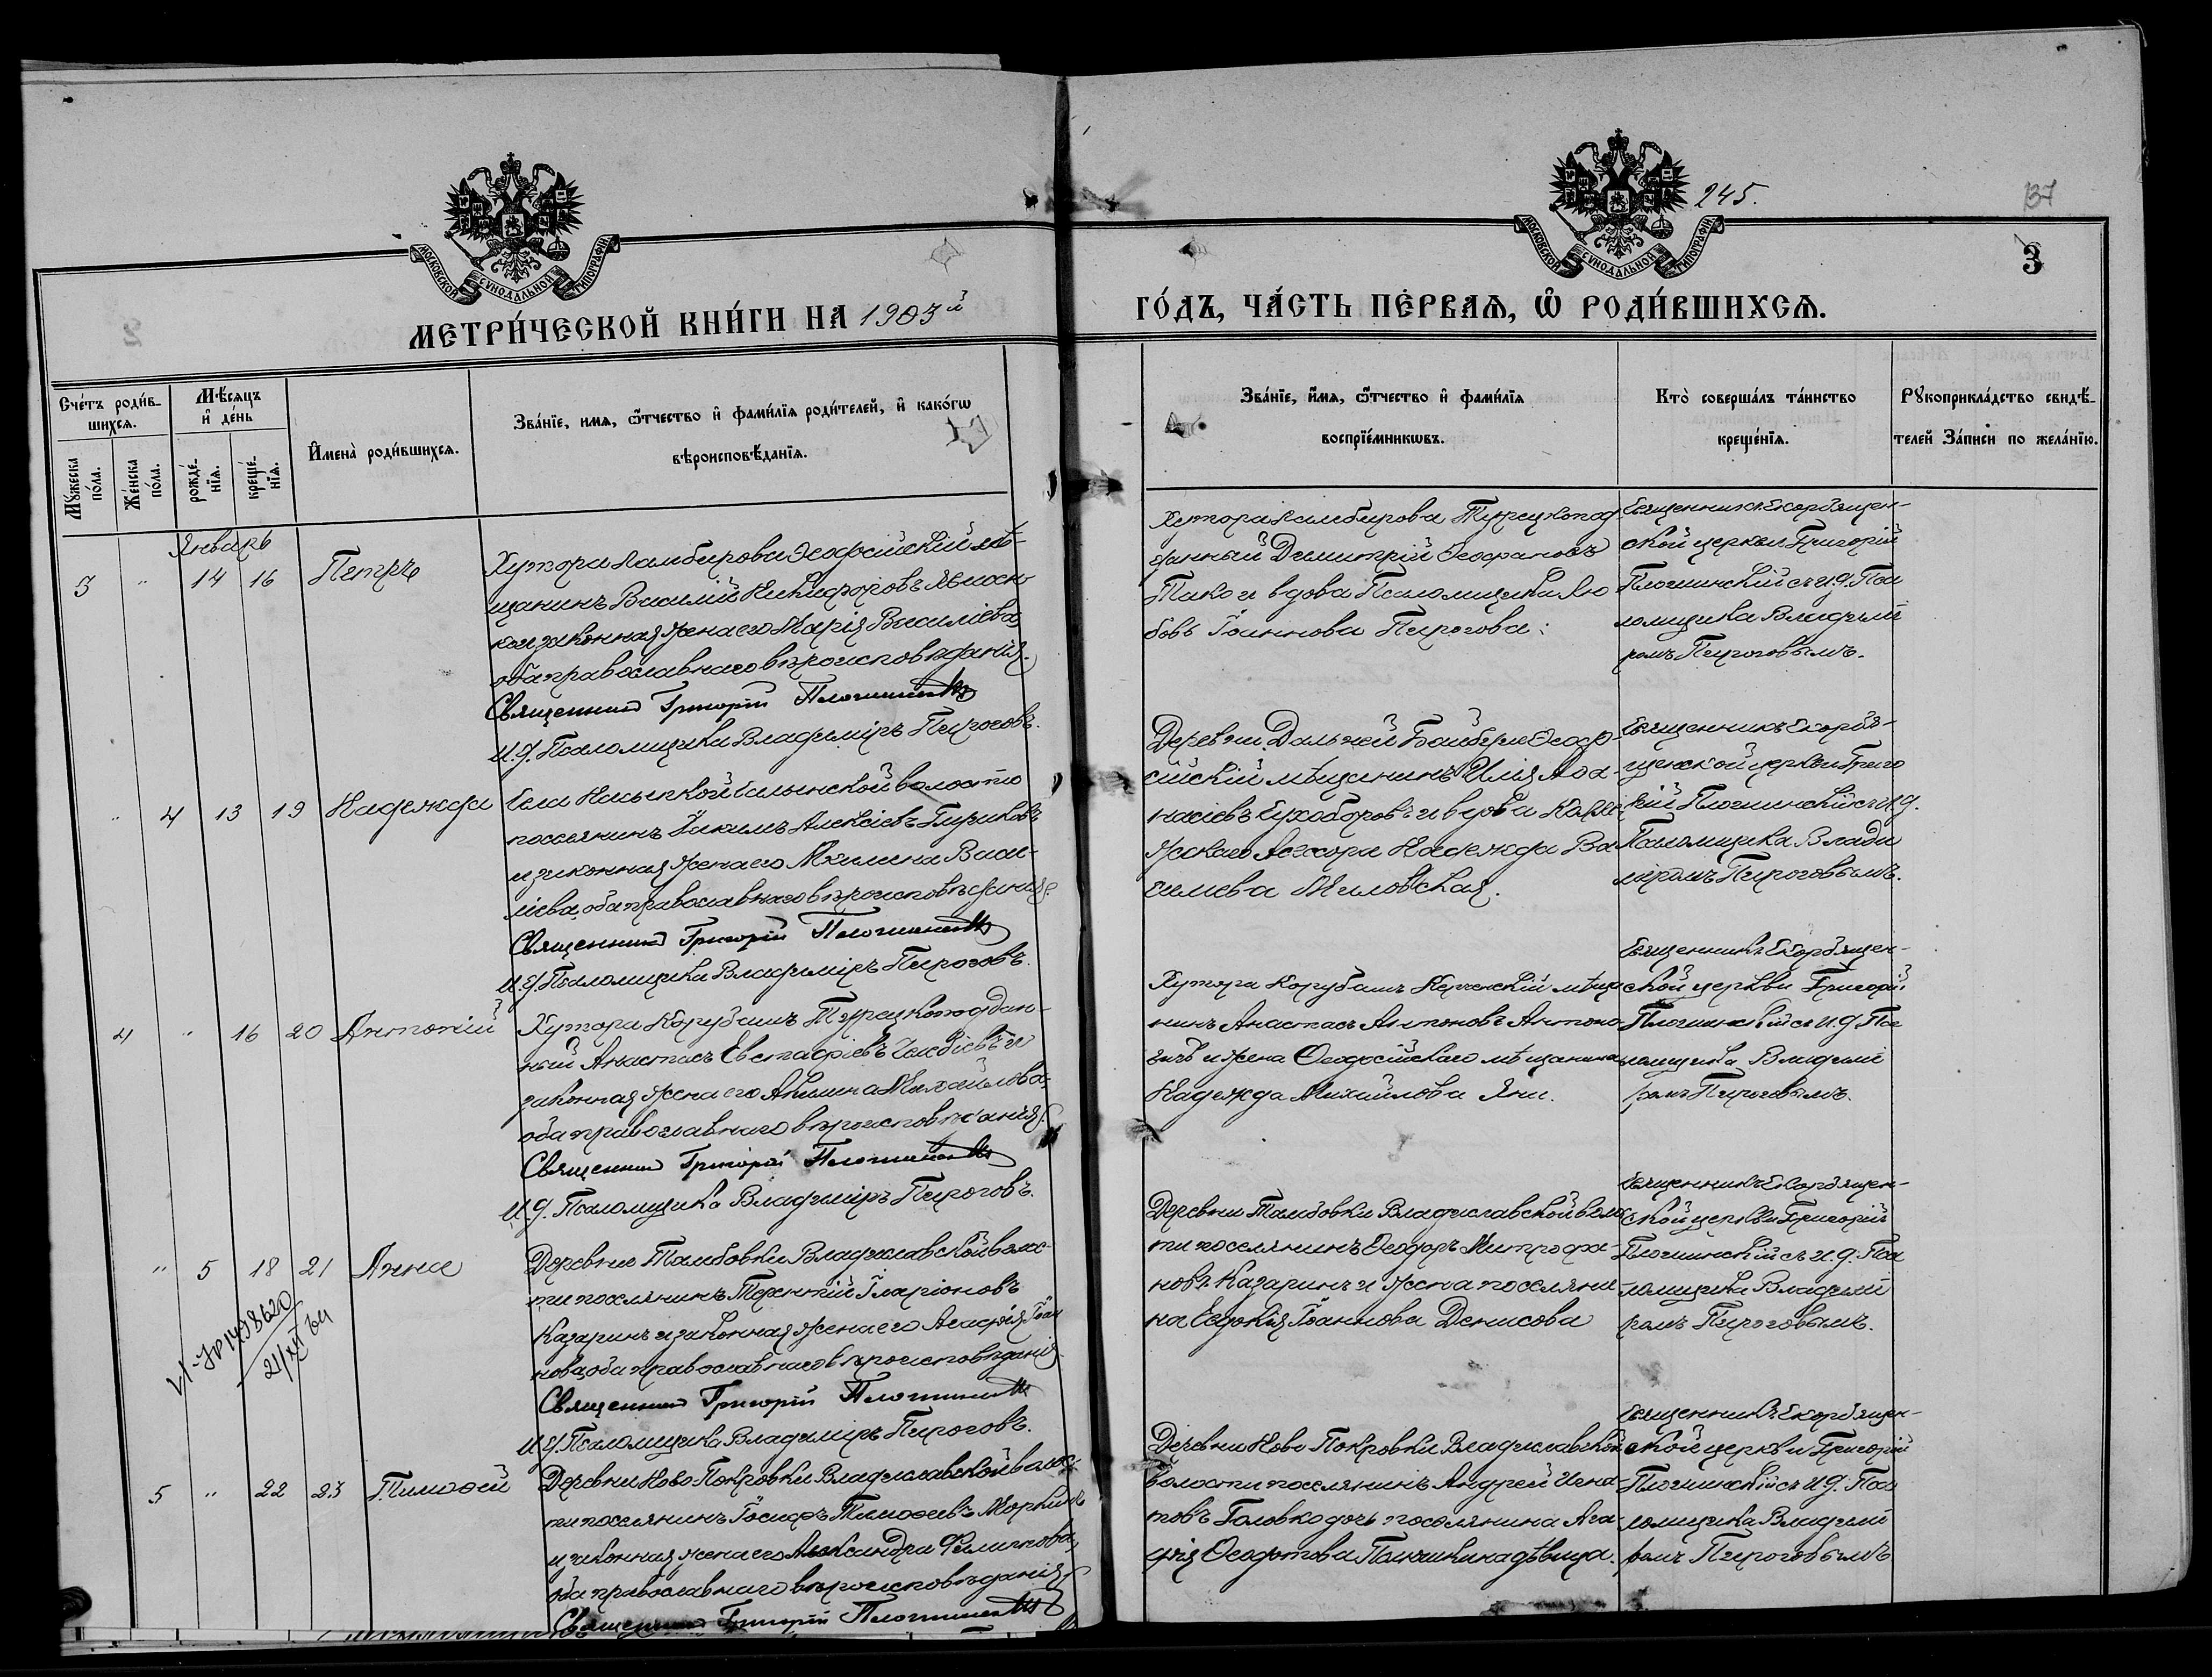 245.
137
3
МОСКОВСКОЙ СѴНОДАЛЬНОЙ ТИПОГРАФІИ
МОСКОВСКОЙ СѴНОДАЛЬНОЙ ТИПОГРАФІИ
МЕТРИ́ЧЕСКОЙ КНИ́ГИ НА 1903й
ГО́ДЪ, ЧА́СТЬ ПЕ́РВАѦ, Ѡ҆ РОДИ́ВШИХСѦ.
Сче́тъ роди́в-
шихсѧ.
Мꙋжеска по́ла.
Же́нска по́ла.
Мѣ́сѧцъ
и҆ де́нь
рожде́-
нїѧ.
креще́-
нїѧ.
И҆мена̀ роди́вшихсѧ.
Зва́нїе, имѧ, ѻ҆́тчество и҆ фами́лїѧ роди́телей, и҆ како́гѡ
вѣроисповѣ́данїѧ.
Зва́нїе, и҆́мѧ, ѻ҆́тчество и҆ фами́лїѧ
воспрїе́мникѡвъ.
Кто̀ соверша́лъ та́инство
креще́нїѧ.
Рꙋкоприкла́дство свидѣ́-
телей за́писи по жела́нїю.
Январь
3 " 14 16 Петръ
Хутора Ламбирова Ѳеодосійскій мѣ-
щанинъ Василій Никифоровъ
законная жена его Марія Василіева,
оба православнаго вѣроисповѣданія.
Священникъ Григорій Плотинскій
И.д. Псаломщика Владиміръ Пироговъ.
Хутора Ламбирова Турецкопод-
данный Димитрій Ѳеофановъ
вдова Псаломщика Лю-
бовь Іоаннова Пирогова.
Священникъ Скорбящен-
ской церкви Григорій
Плотинскій съ И.д. Пса
ломщика Владимі
ромъ Пироговымъ.
" 4 13 19 Надежда
Села Насыпкой Салынской волости
поселянинъ Іакимъ Алексіевъ
и законная жена его Василіева, оба православнаго вѣроисповѣданія.
Священникъ Григорій Плотинскій
И.д. Псаломщика Владиміръ Пироговъ.
Деревни Дальней Байбуги Ѳеодо-
сійскій мѣщанинъ Илія Аѳа-
насіевъ Сухоборовъ и вдова Колле-
жскаго Асессора Надежда Ва-
силиева Миловская.
Священникъ Скорбя-
щенской церкви Григо
рій Плотинскій съ И.д.
Псаломщика Влади
міромъ Пироговымъ.
4 " 16 20 Антоній
Хутора Корубашъ Турецкоподдан-
ный Анастасъ Евстафіевъ и
законная жена его Акилина Михайлова,
оба православнаго вѣроисповѣданія.
Священникъ Григорій Плотинскій
И.д. Псаломщика Владиміръ Пироговъ.
Хутора Корубашъ Керченскій мѣща
нинъ Анастасъ Антоновъ
и жена Ѳеодосійскаго мѣщанина
Надежда Михайлова Яни.
Священникъ Скорбящен-
ской церкви Григорій
Плотинскій съ И.д. Пса
ломщика Владимі
ромъ Пироговымъ.
" 5 18 21 Анна
Деревни Тамбовки Владиславской волос-
ти поселянинъ Терентій Иларіоновъ
Казаринъ и законная жена его Агафія Іоан
нова, оба православнаго вѣроисповѣданія.
Священникъ Григорій Плотинскій
И.д. Псаломщика Владиміръ Пироговъ.
Деревни Тамбовки Владиславской волос
ти поселянинъ Ѳеодоръ Митрофа-
новъ Казаринъ и жена поселяни
на Евдокія Іоаннова Денисова
Священникъ Скорбящен-
ской церкви Григорій
Плотинскій съ И.д. Пса
ломщика Владимі
ромъ Пироговымъ.
1498620
21/XII 64
5 " 22 23 Тимоѳей
Деревни Ново Покровки Владиславской волос-
ти поселянинъ Іосифъ Тимоѳеевъ Моркинъ
и законная жена его Александра Филиппова,
оба православнаго вѣроисповѣданія.
Священникъ Григорій Плотинскій
Деревни Ново Покровки Владиславской
волости поселянинъ Андрей Игна-
товъ Головко дочь поселянина Ага-
фія Ѳеодотова дѣвица.
Священникъ Скорбящен-
ской церкви Григорій
Плотинскій съ И.д. Пса
ломщика Владимі
ромъ Пироговымъ